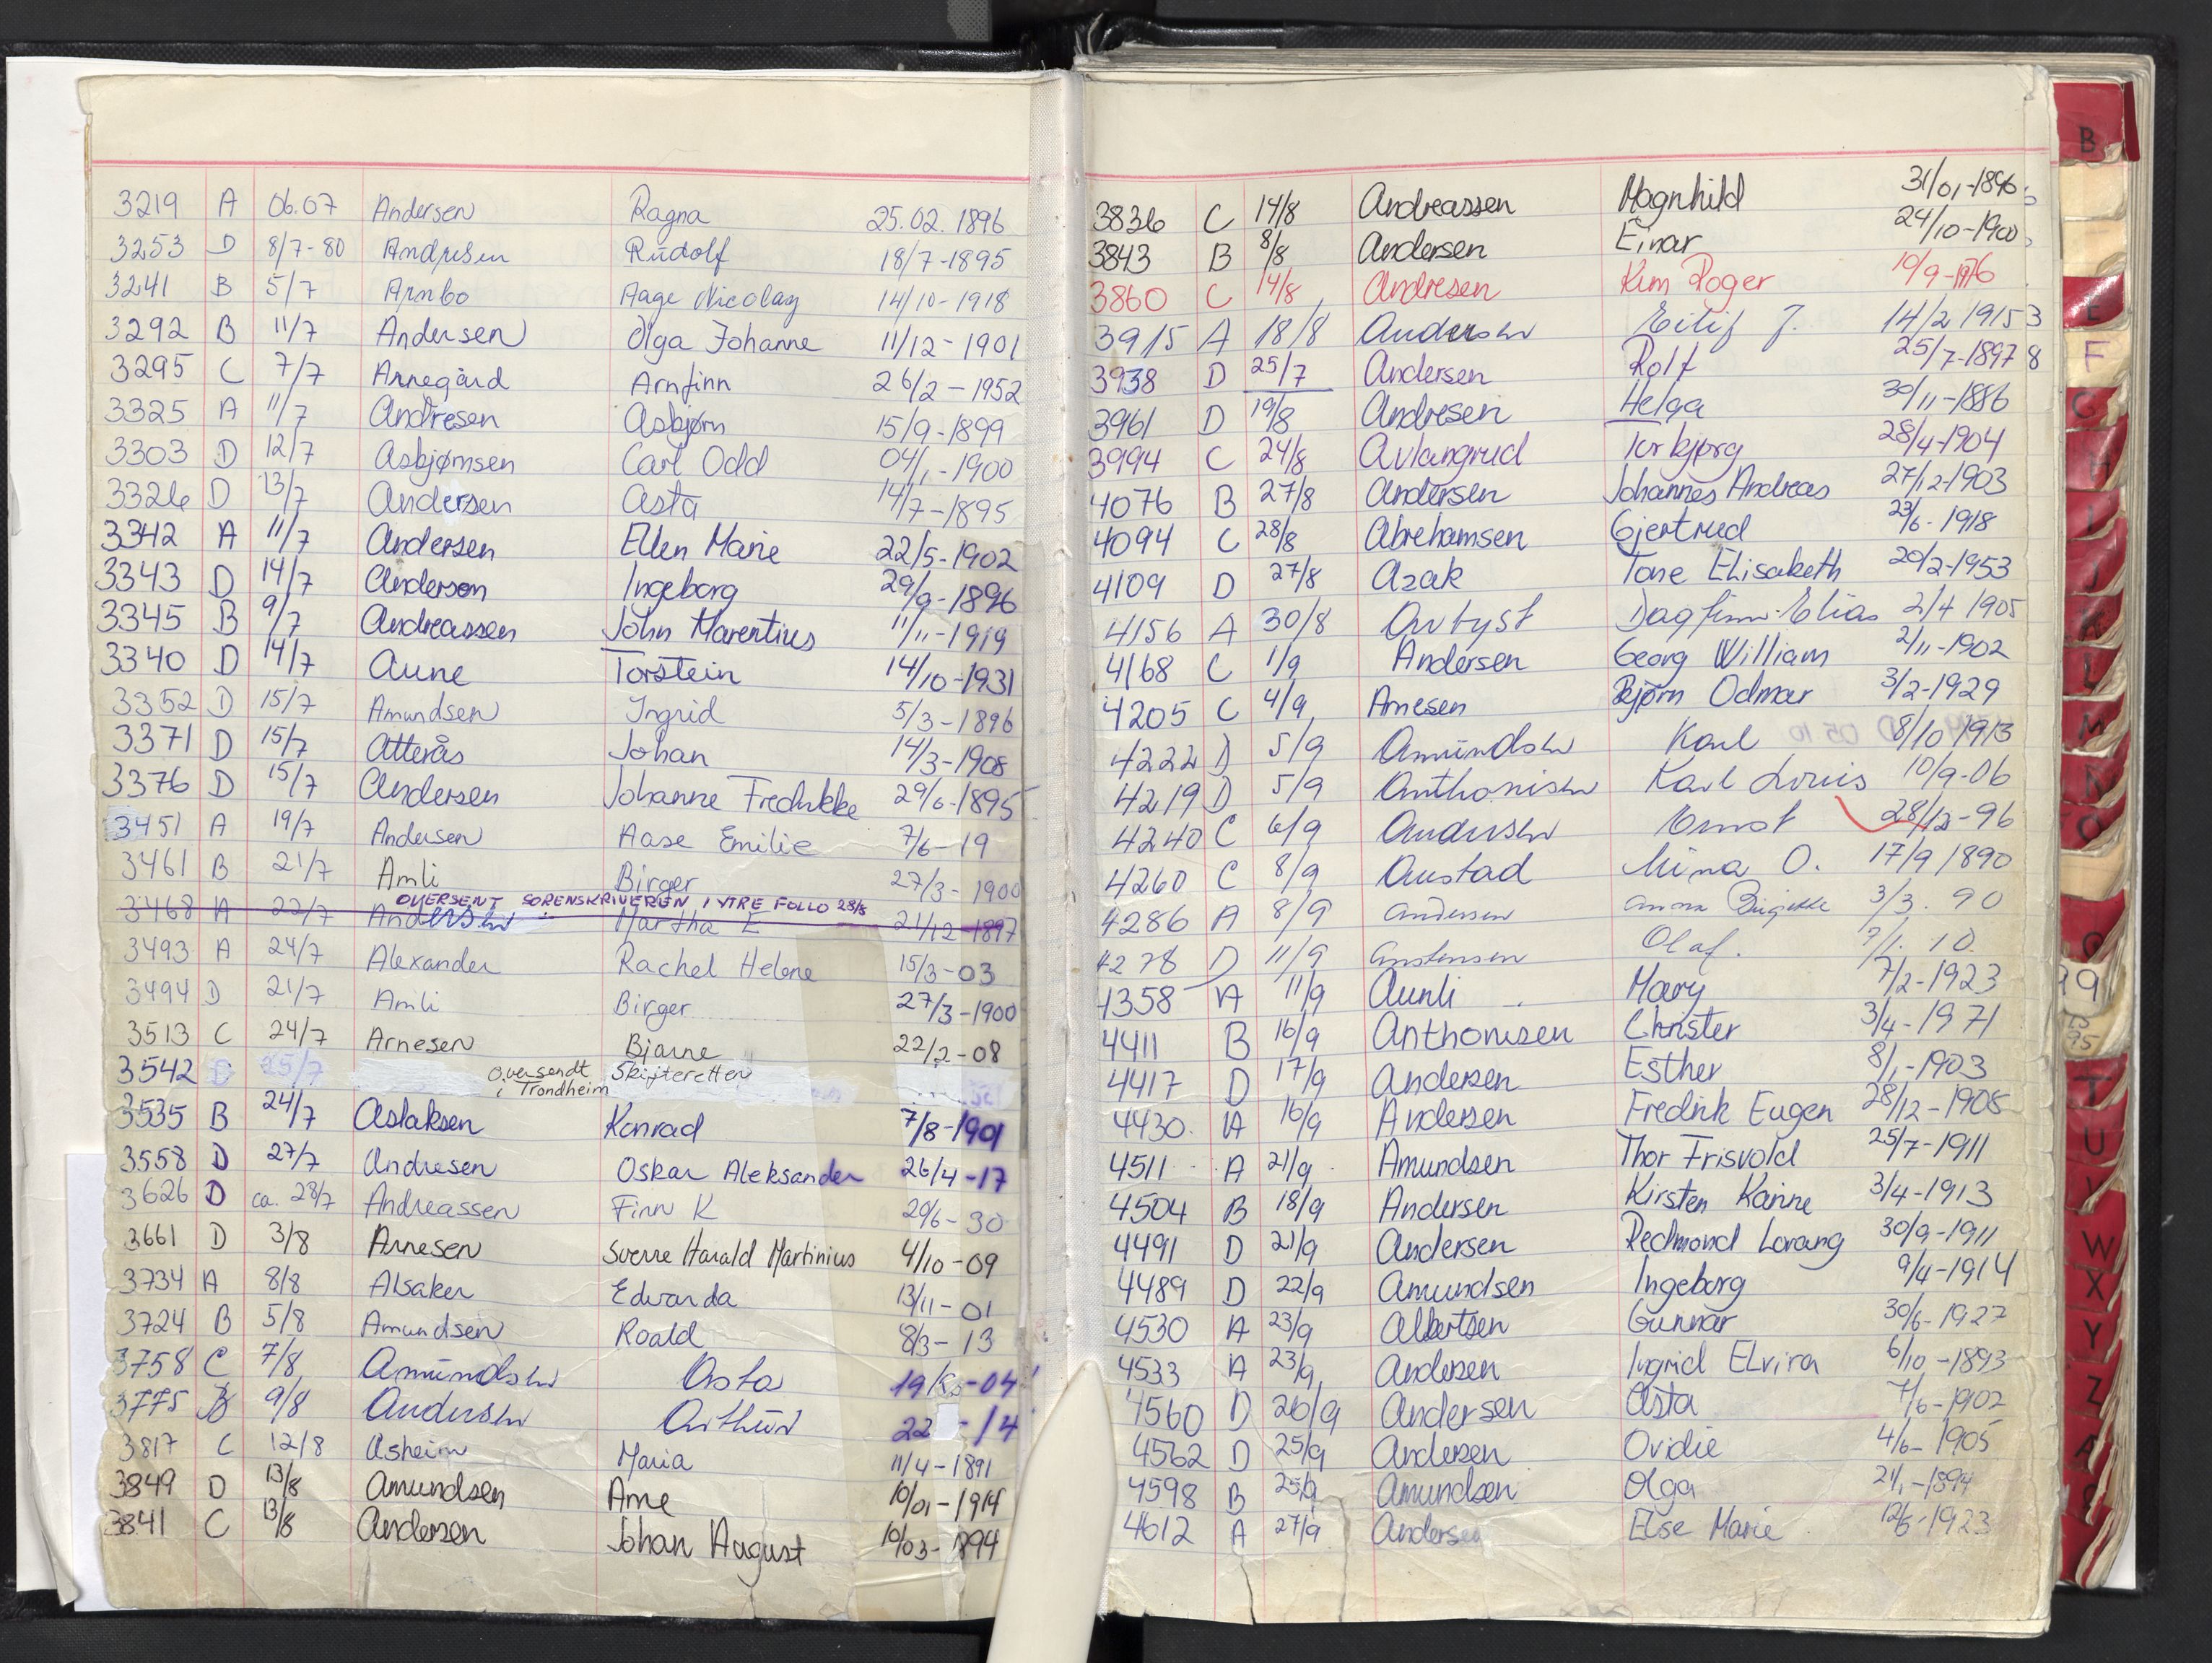 3219 A 06.07 Andersen Ragna 25.02.1896
3253 D 8/7-80 Andresen Rudolf 18/7-1895
3241 B 5/7 Arnbo Aage Nicolay 14/10-1918
3292 B 11/7 Andersen Olga Johanne 11/12-1901
3295 C 7/7 Arnegård Arnfinn 26/2-1952
3325 A 11/7 Andresen Asbjørn 15/9-1899
3303 D 12/7 Asbjørnsen Carl Odd 04/1-1900
3326 D 13/7 Andersen Asta 14/7-1895
3342 A 11/7 Andersen Ellen Marie 22/5-1902
3343 D 14/7 Anderson Ingeborg 29/9-1896
3345 B 9/7 Andreassen John Marentius 11/11-1919
3340 D 14/7 Aune Torstein 14/10-1931
3352 D 15/7 Amundsen Ingrid 5/3-1896
3371 D 15/7 Atterås Johan 14/3-1908
3376 D 15/7 Andersen Johanne Fredrikke 29/6-1895
3451 A 19/7 Andersen Aase Emilie 7/6-19
3461 B 21/7 Amli Birger 27/3-1900
OVERSENT SORENSKRIVEREN I YTRE FOLLO 28/8
3468 A 22/7 Andersen Martha E 21/12-1897
3493 A 24/7 Alexander Rachel Helene 15/3-03
3494 D 21/7 Amli Birger 27/3-1900
3513 C 24/7 Arnesen Bjarne 22/2-08
3542 D 25/7 Oversendt Skifteretten
i Trondheim
3535 B 24/7 Aslaksen Konrad 7/8-1901
3558 D 27/7 Andresen Oskar Aleksander 26/4-17
3626 D ca. 28/7 Andreassen Finn K 29/6-30
3661 D 3/8 Arnesen Sverre Harald Martinius 4/10-09
3734 A 8/8 Alsaker Edvarda 13/11-01
3724 B 5/8 Amundsen Roald 8/3-13
3758 C 7/8 Amundsen Asta 19/ -04
3775 B 9/8 Andersen Arthur 22 -14
3817 C 12/8 Asheim Maria 11/4-1891
3849 D 13/8 Amundsen Arne 10/01-1914
3841 C 13/8 Andersen Johan August 10/03-1894
3836 C 14/8 Andreassen Magnhild 31/01-1896
3843 B 8/8 Andersen Einar 24/10-1900
3860 C 14/8 Andresen Kim Roger 10/9-1976
3915 A 18/8 Andersen Eilif J. 14/2 1915 3
3938 D 25/7 Andersen Rolf 25/7-1897 8
3961 D 19/8 Andresen Helga 30/11-1886
3994 C 24/8 Avlangrud Torbjørg 28/4-1904
4076 B 27/8 Andersen Johannes Andreas 27/12-1903
4094 C 28/8 Abrehamsen Gjertrud 23/6-1918
4109 D 27/8 Azak Tone Elisabeth 20/2-1953
4156 A 30/8 Dagfinn Elias 2/4 1905
4168 C 1/9 Andersen Georg William 2/11-1902
4205 C 4/9 Arnesen Bjørn Odmar 3/2-1929
4222 D 5/9 Amundsen Karl 8/10 1913
4219 D 5/9 Anthonisen Karl Louis 10/9-06
4240 C 6/9 Andersen Ernst 28/12-96
4260 C 8/9 Austad Mina O. 17/9 1890
4286 A 8/9 Andersen Anna Birgitte 3/3. 90
4278 D 11/9 Olaf. 10
4358 A 11/9 Aunli Mary 7/2-1923
4411 B 16/9 Anthonisen Christer 3/4-1971
4417 D 17/9 Andersen Esther 8/1-1903
4430 A 16/9 Andersen Fredrik Eugen 28/12-1908
4511 A 21/9 Amundsen Thor Frisvold 25/7-1911
4504 B 18/9 Andersen Kirsten Karine 3/4-1913
4491 D 21/9 Andersen Redmond Lorang 30/9-1911
4489 D 22/9 Amundsen Ingeborg 9/4-1914
4530 A 23/9 Albertsen Gunnar 30/6-1927
4533 A 23/9 Andersen Ingrid Elvira 6/10-1893
4560 D 26/9 Andersen Asta 7/6-1902
4562 D 25/9 Andersen Ovidie 4/6-1905
4598 B 25/9 Amundsen Olga 21/1-1894
4612 A 27/9 Andersen Else Marie 12/6-1923
B
E
F
G
H
I
J
K
L
M
N
O
Q
T
U
V
W
X
Y
Z